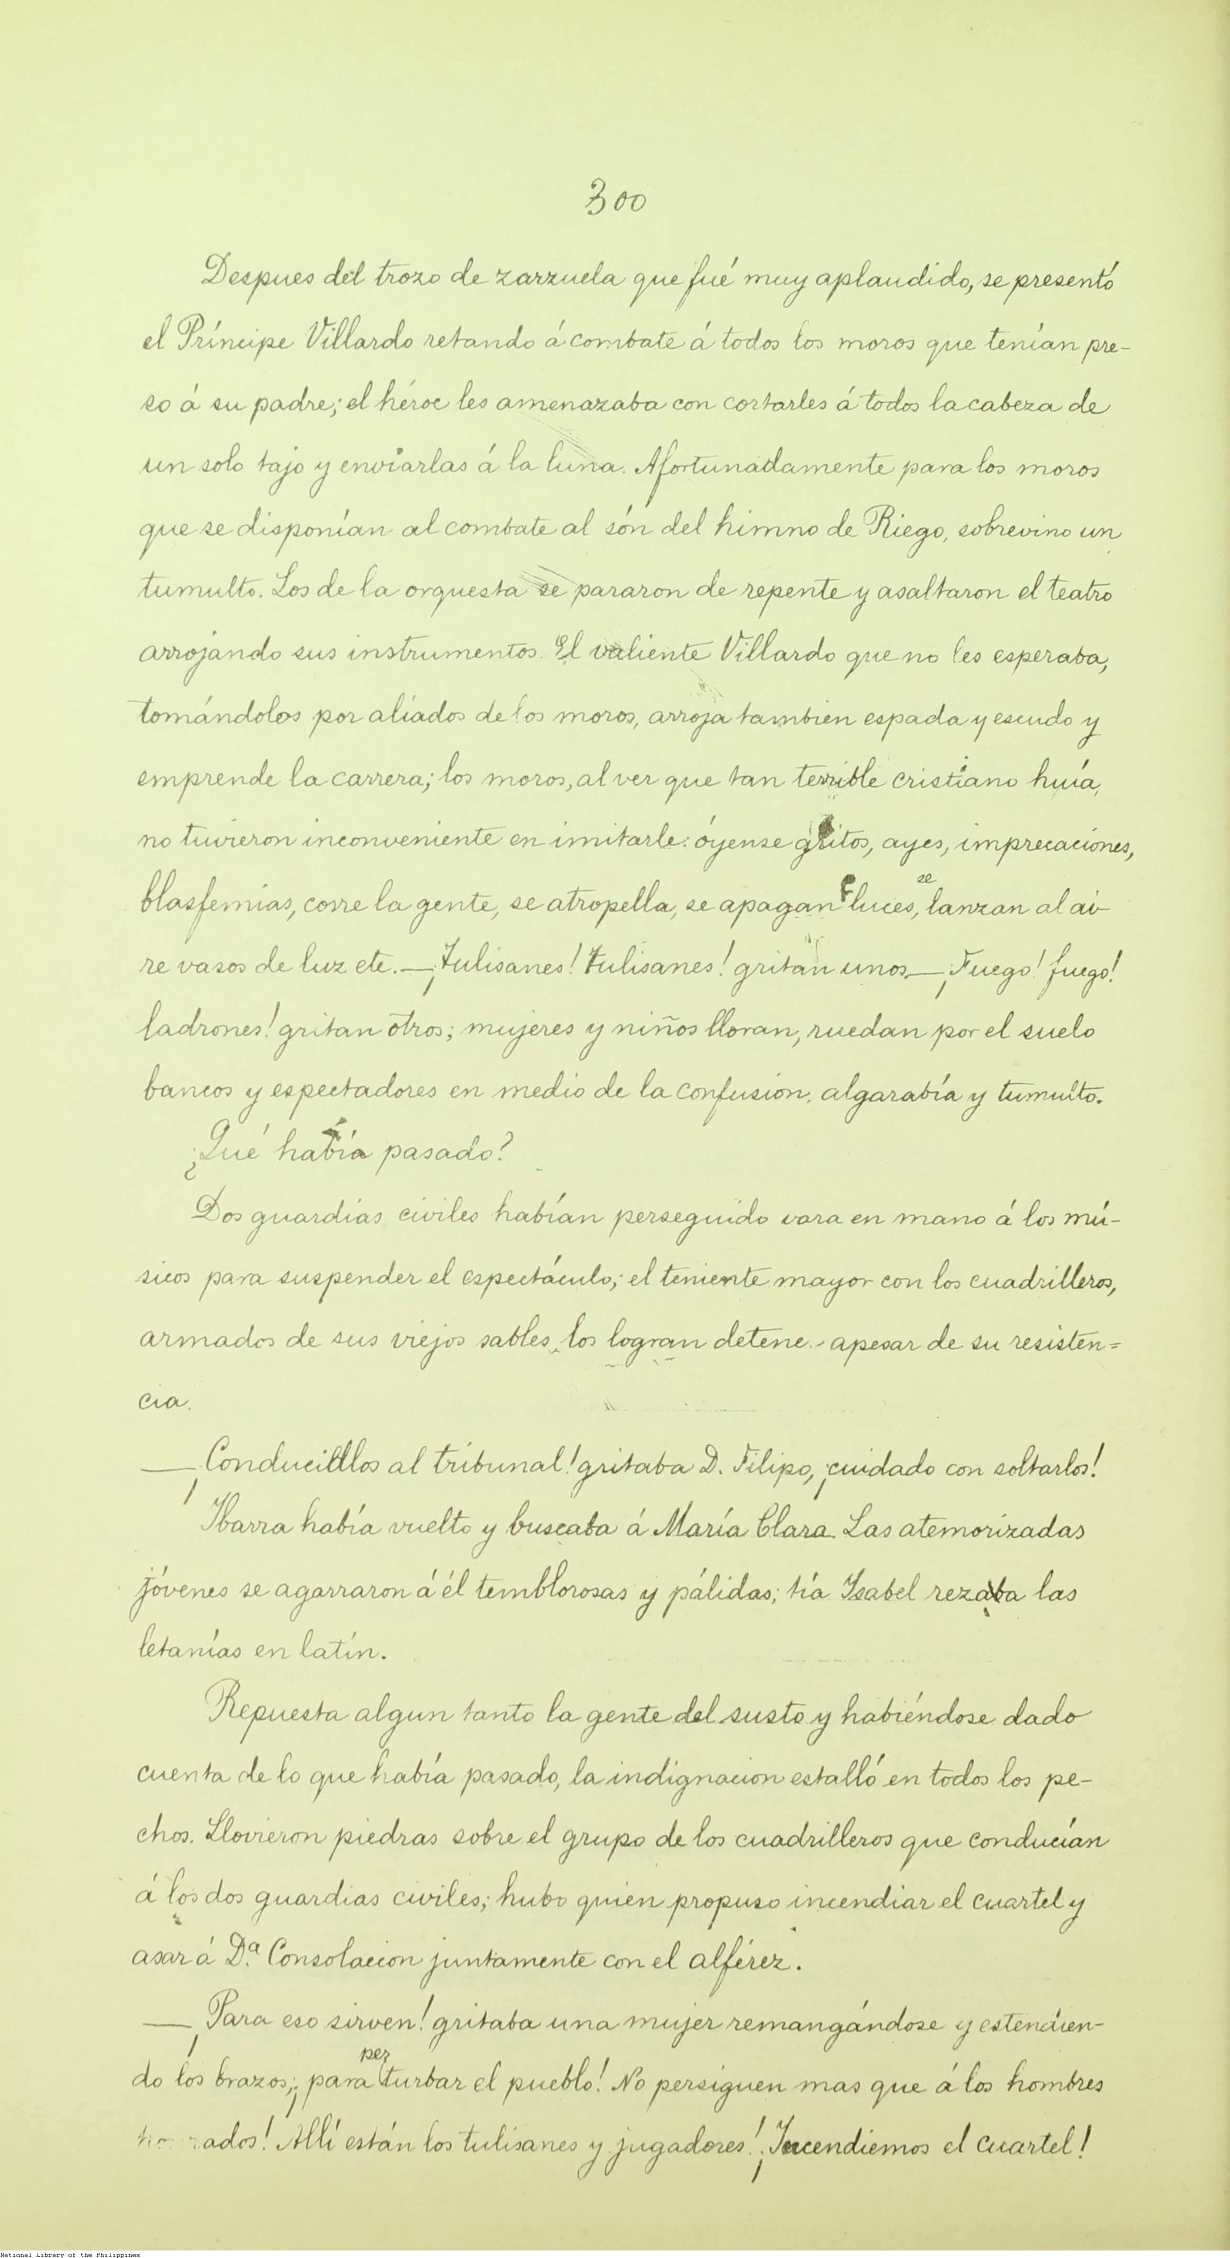 300
Despues del trozo de zarzuela que fué muy aplaudido, se presentó
el Príncipe Villardo retando á combate á todos los moros que tenían pre-
so á su padre; el héroe les amenazaba con cortarles á todos la cabeza de
un solo tajo y enviarlas á la luna. Afortunadamente para los moros
que se disponían al combate al són del himno de Riego, sobrevino un
tumulto. Los de la orquesta se pararon de repente y asaltaron el teatro
arrojando sus instrumentos. El valiente Villardo que no les esperaba,
tomándolos por aliados de los moros, arroja tambien espada y escudo y
emprende la carrera; los moros, al ver que tan terrible cristiano huía,
no tuvieron inconveniente en imitarle: óyense gritos, ayes, imprecaciones,
blasfemias, corre la gente, se atropella, se apagan luces, se lanzan al ai-
re vasos de luz etc. — ¡Tulisanes! Tulisanes! gritan unos — ¡Fuego! fuego!
ladrones! gritan otros; mujeres y niños lloran, ruedan por el suelo
bancos y espectadores en medio de la confusion, algarabía y tumulto.
¿Qué había pasado?
Dos guardias civiles habían perseguido vara en mano á los mú-
sicos para suspender el espectáculo; el teniente mayor con los cuadrilleros,
armados de sus viejos sables, los logran detener apesar de su resisten=
cia.
— ¡Conducidlos al tribunal! gritaba D. Filipo, ¡cuidado con soltarlos!
Ibarra había vuelto y buscaba á María Clara. Las atemorizadas
jóvenes se agarraron á él temblorosas y pálidas; tía Isabel rezaba las
letanías en latín.
Repuesta algun tanto la gente del susto y habiéndose dado
cuenta de lo que había pasado, la indignacion estalló en todos los pe-
chos. Llovieron piedras sobre el grupo de los cuadrilleros que conducían
á los dos guardias civiles; hubo quien propuso incendiar el cuartel y
asar á Dª. Consolacion juntamente con el alférez.
— ¡Para eso sirven! gritaba una mujer remangándose y estendien-
do los brazos; ¡para perturbar el pueblo! No persiguen mas que á los hombres
honrados! Allí están los tulisanes y jugadores! ¡Incendiemos el cuartel!
National Library of the Philippines